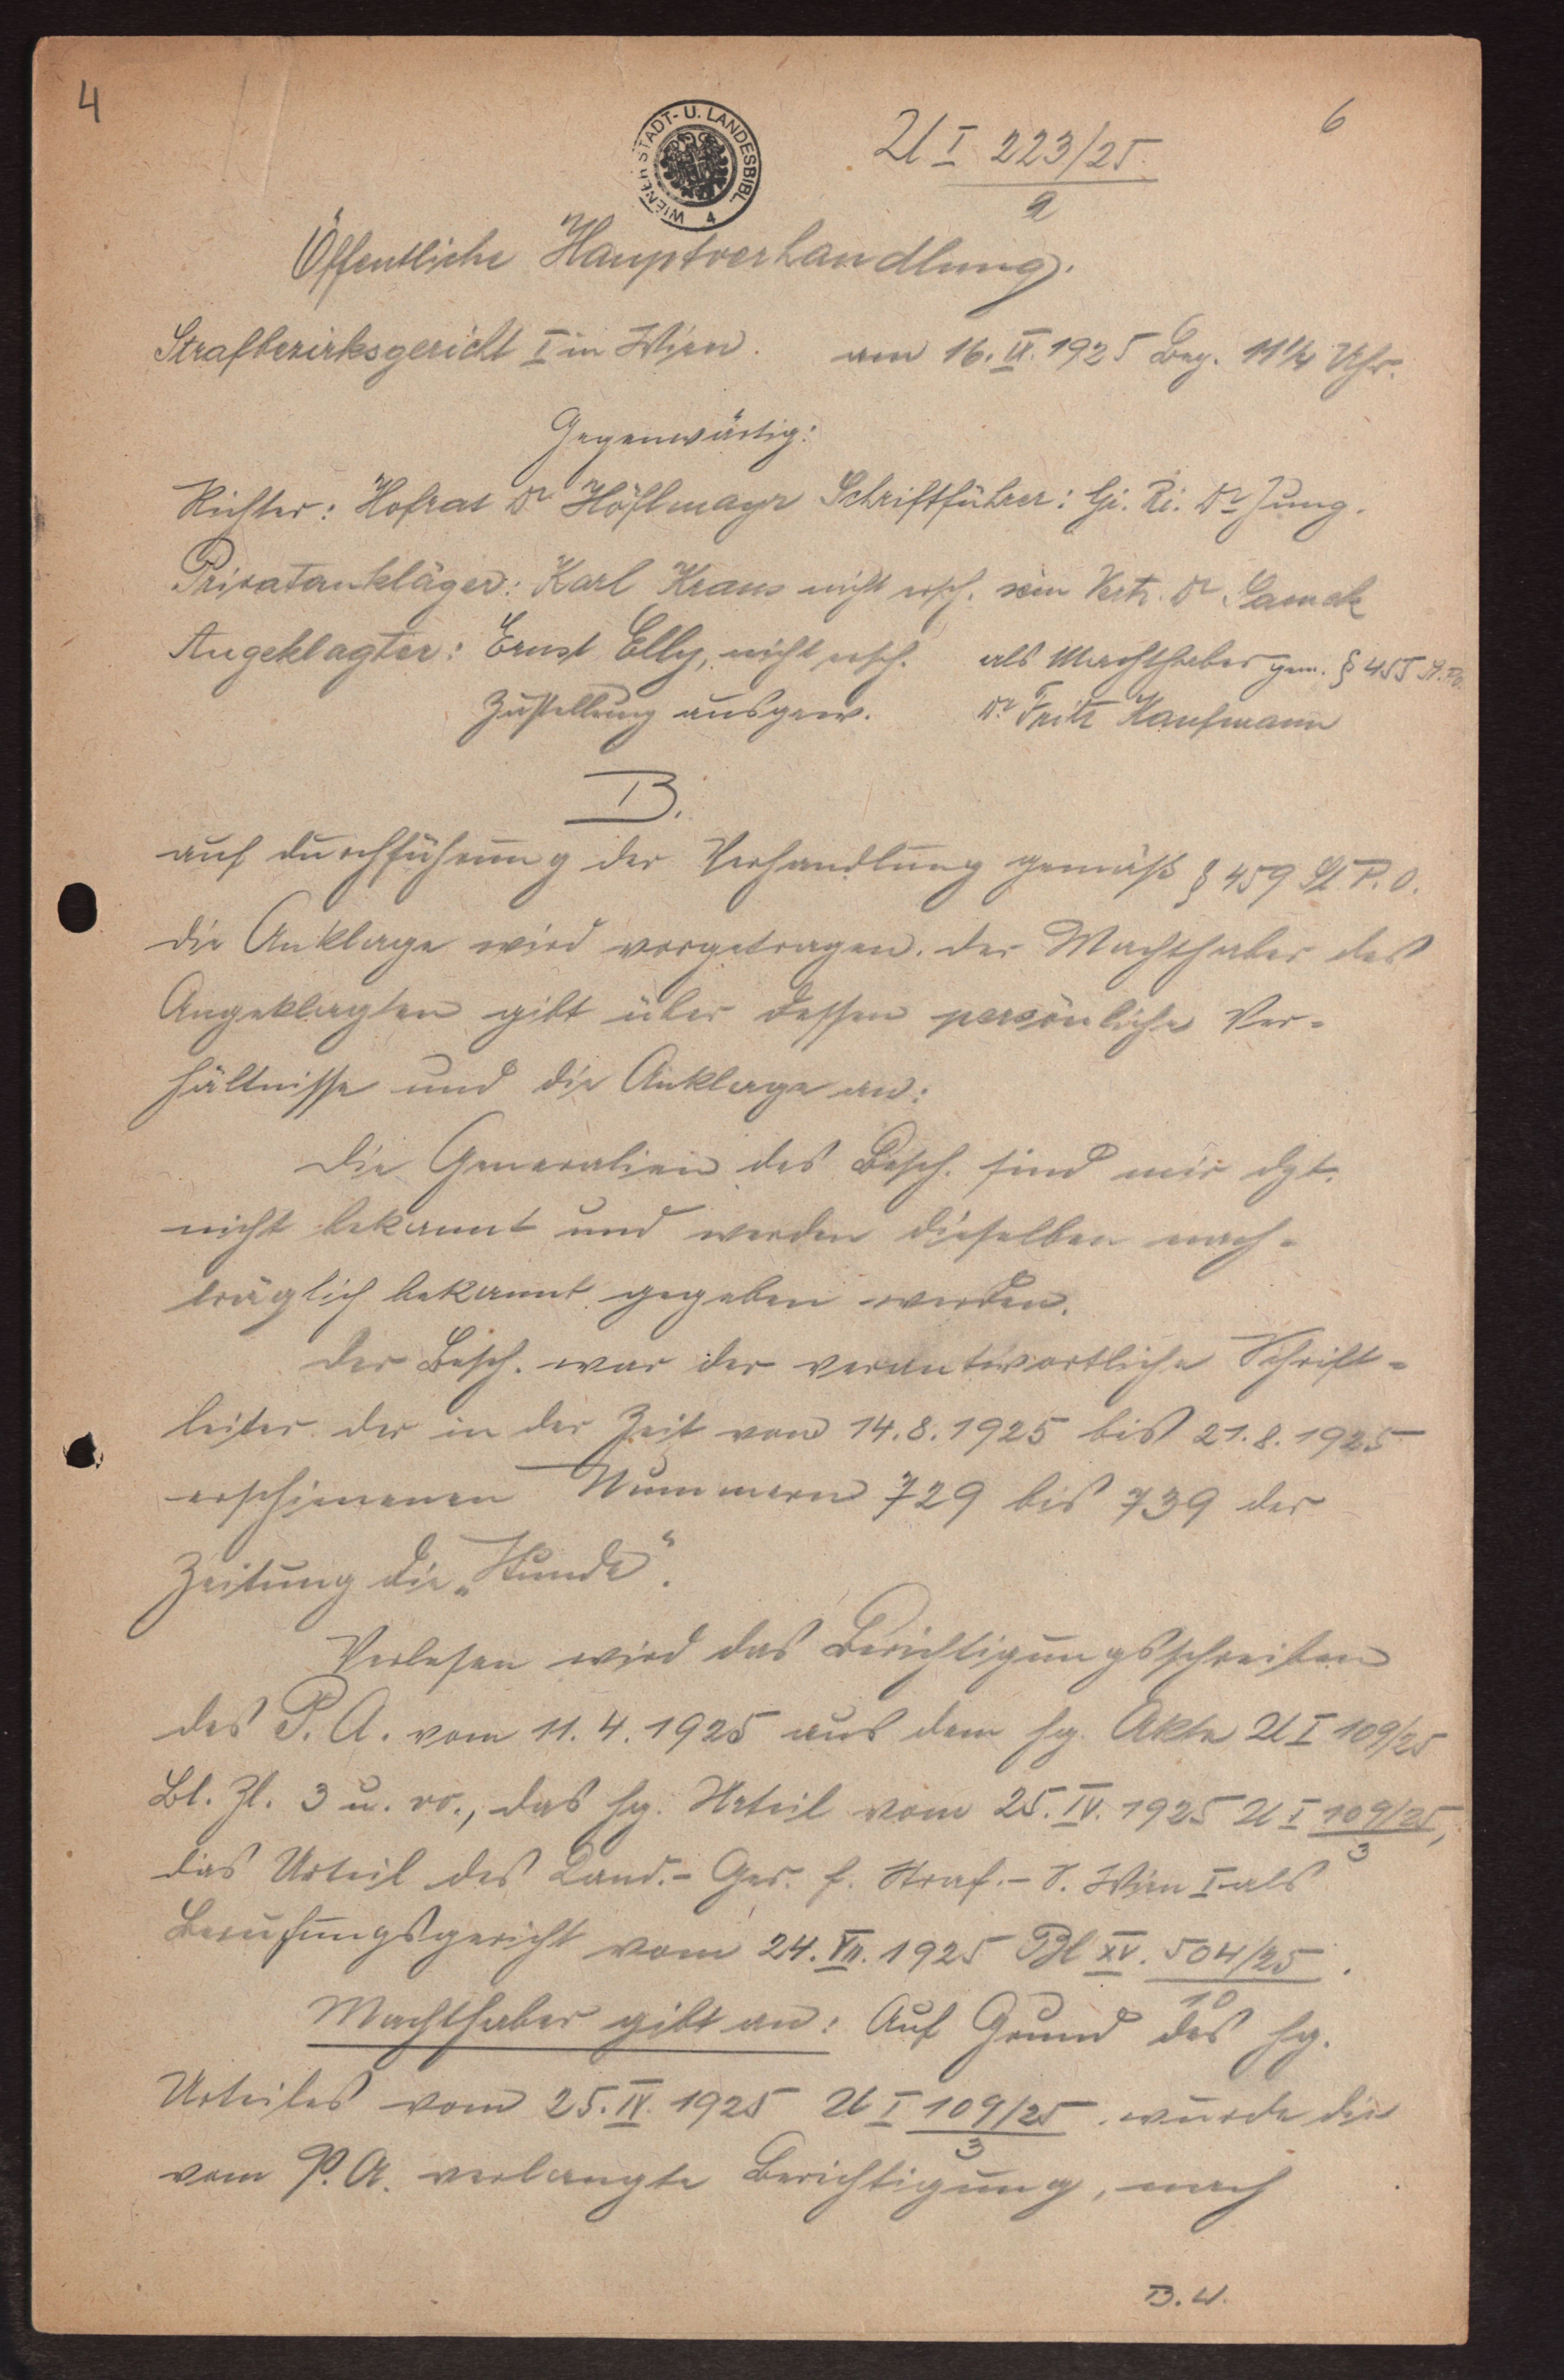 4
6
WIENER STADT- U. LANDESBIBL.
4
U I 223/25
2
Öffentliche Hauptverhandlung.
Strafbezirksgericht I in Wien. am 16. IX. 1925 Beg. 11 1/4 Uhr.
Gegenwärtig:
Richter: Hofrat Dr Höflmayr Schriftführer: Dr Jung.
Privatankläger: Karl Kraus nicht ersch. sein Vertr. Dr Samek
Angeklagter: Ernst Ely, nicht ersch. als Machthaber gem. § 455 St.P.O.
Zustellung ausgew. Dr. Fritz Kaufmann
B.
auf Durchführung der Verhandlung gemäß § 459 St. P. O.
Die Anklage wird vorgetragen. Der Machthaber des
Angeklagten gibt über dessen persönliche Ver-
hältnisse und die Anklage an:
Die Generalien des Besch. sind mir dzt.
nicht bekannt und werden dieselben nach-
träglich bekannt gegeben werden.
Der Besch. war der verantwortliche Schrift-
leiter der in der Zeit vom 14.8.1925 bis 21.8.1925
erschienenen Nummern 729 bis 739 der
Zeitung die „Stunde“.
Verlesen wird das Berichtigungsschreiben
des P. A. vom 11.4.1925 aus dem hg. Akte U I 109/25
Bl. Zl. 3 u. vo., das hg. Urteil vom 25. IV. 1925 U I 109/25,
3
das Urteil des Land.- Ger. f. Straf.- S. Wien I als
Berufungsgericht vom 24. VII. 1925 Bl XV. 504/25.
10
Machthaber gibt an: Auf Grund des hg.
Urteiles vom 25. IV. 1925 U I 109/25 wurde die
3
vom P. A. verlangte Berichtigung, nach
B. W.